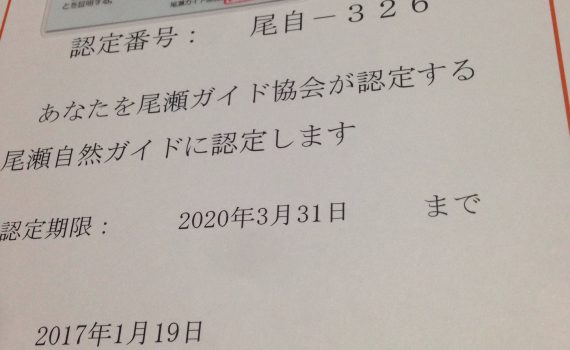 とを証明する。
認定番号： 尾自－３２６
あなたを尾瀬ガイド協会が認定する
尾瀬自然ガイドに認定します
認定期限： 2020年3月31日 まで
2017年1月19日